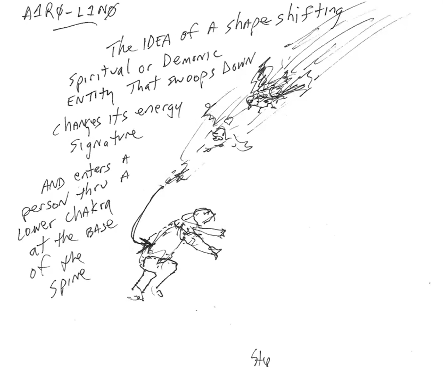 A1RØ-L1NØ
The IDEA of A shape shifting
spiritual or Demonic
ENTITY That swoops Down
changes its energy
signature
AND enters A
person thru A
Lower chakra
at the BASE
of the
spine